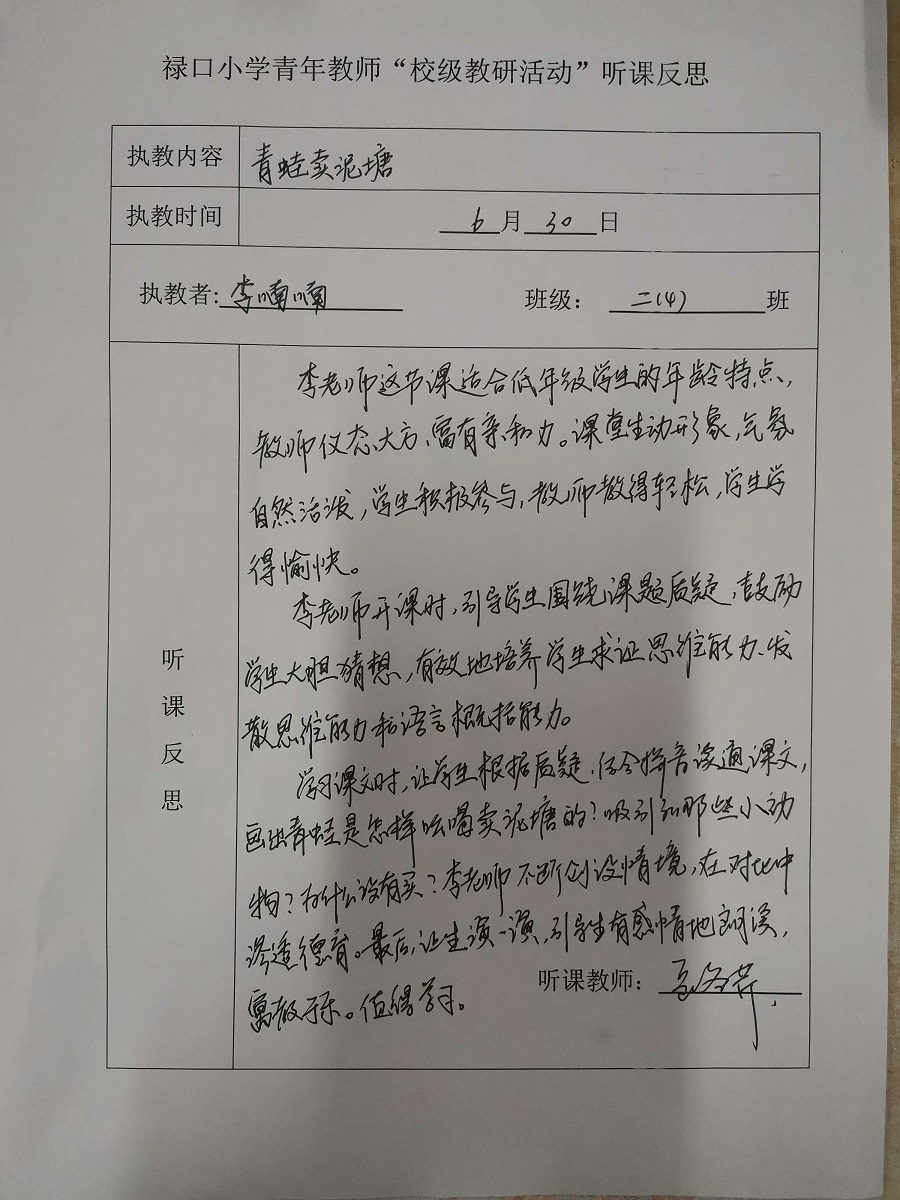 禄口小学青年教师“校级教研活动”听课反思
执教内容 青蛙卖泥塘
执教时间 6月30日
执教者:李喃喃 班级：二(4)班
听课反思
李老师这节课适合低年级学生的年龄特点，
教师仪态大方、富有亲和力。课堂生动形象，气氛
自然活泼，学生积极参与，教师教得轻松，学生学
得愉快。
李老师开课时，引导学生围绕课题质疑，鼓励
学生大胆猜想，有效地培养学生求证思维能力、发
散思维能力和语言概括能力。
学习课文时，让学生根据质疑，结合拼音读通课文，
画出青蛙是怎样吆喝卖泥塘的？吸引和那些小动
物？为什么没有买？李老师不断创设情境，在对比中
渗透德育。最后，让生演一演，引导生有感情地朗读，
寓教于乐。值得学习。
听课教师：